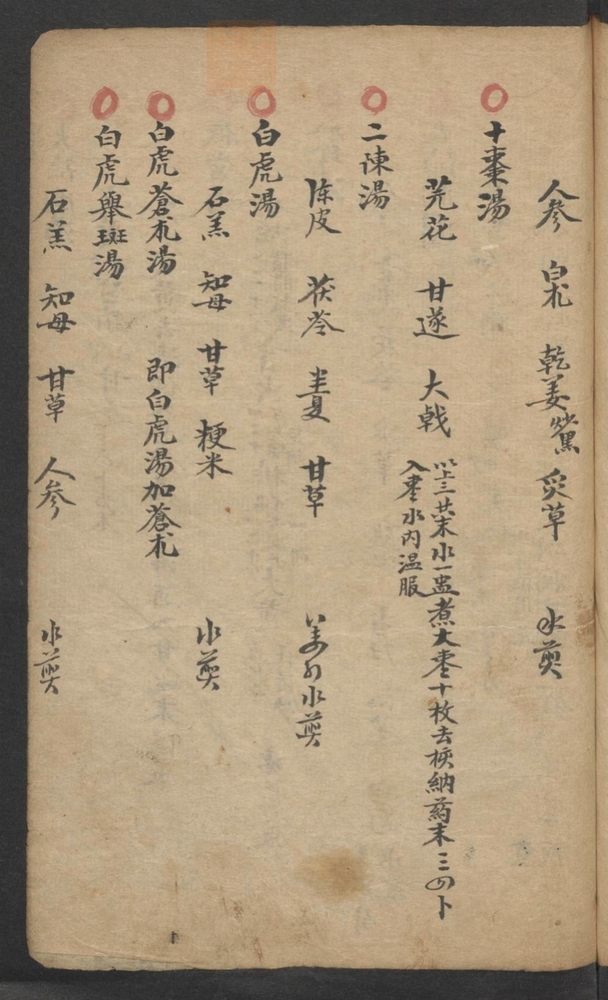 人參 白朮 乾姜 炙草 水煎
十棗湯
芫花 甘遂 大戟 以上三共末水一盅煮大棗十枚去核納药末三四卜
入棗水内温服
二陳湯
陈皮 茯苓 半夏 甘草 姜引水煎
白虎湯
石羔 知母 甘草 粳米 水煎
白虎蒼朮湯 即白虎湯加蒼朮
白虎舉斑湯
石羔 知母 甘草 人參 水煎